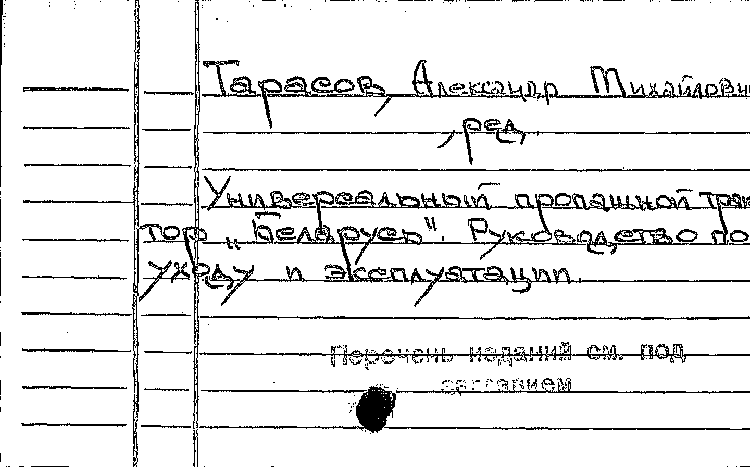 Тарасов, Александр Михайлови
, ред.
Универсальный пропашной трак
тор „Беларусь". Руководство по
уходу и эксплуатации.
Перечень изданий см. под
заглавием